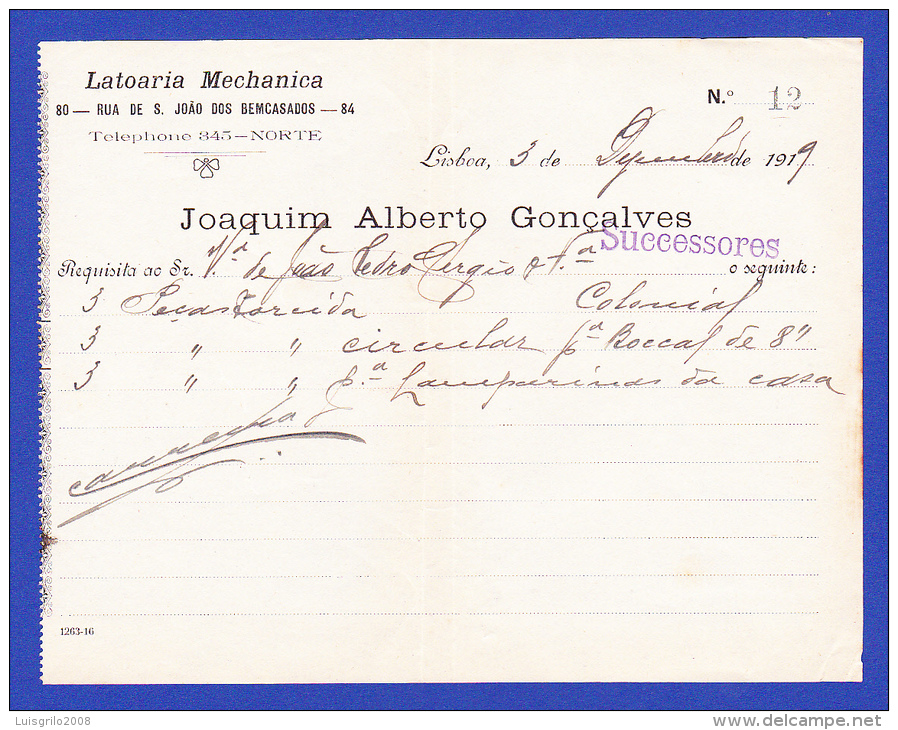 Latoaria Mechanica
80 — RUA DE S. JOÃO DOS BEMCASADOS — 84
Telephone 345—NORTE
N.º 12
Lisboa, 3 de Dezembro de 1919
Joaquim Alberto Gonçalves
Successores
Requisita ao Sr. V.ª de João Pedro Sergio & F.ª o seguinte:
3 Peças Torcida Colonial
3 " " circular p.ª Boccal de 8"
3 " " p.ª Lamparinas da casa
1263-16
Luisgrilo2008
www.delcampe.net